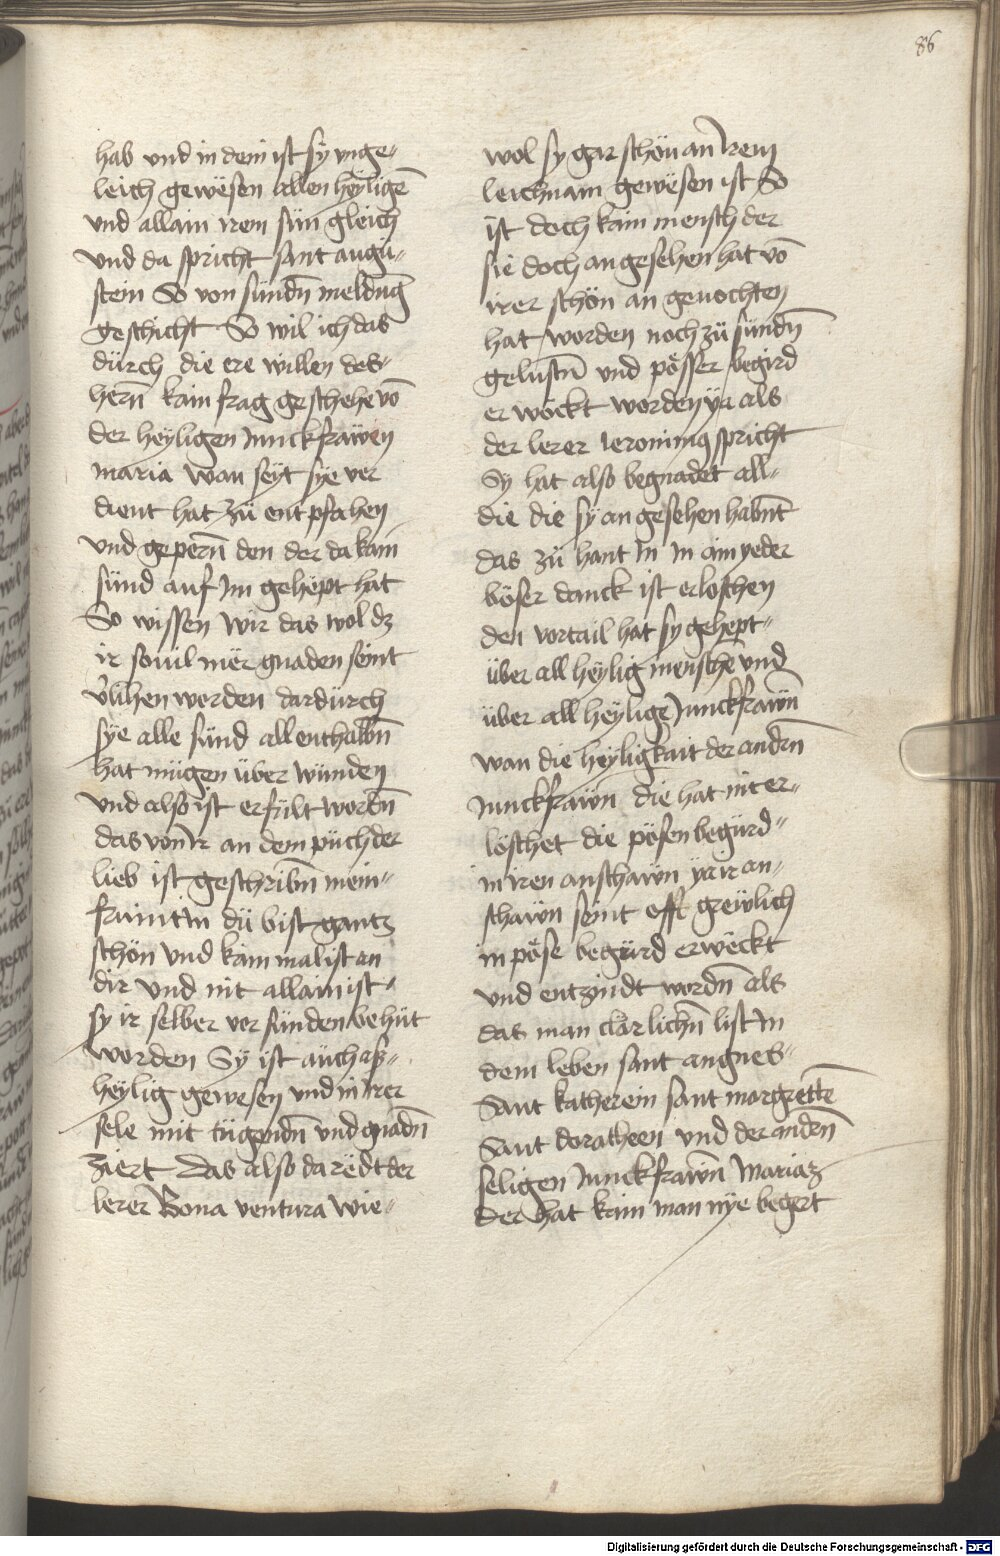 86
hab und in dem ist sy unge-
leich gewësen allen heyligē
und allain irem sün gleich
und da spricht sant augu-
stein So von sündn̄ meldūg
geschicht So wil ich das
dürch die ere willen des
hern̄ kain frag geschehe vō
der heyligen Junckfrawen
maria wan seyt sye ver
dient hat zü entpfahen
und gepern̄ den der da kain
sünd auf Im gehept hat
So wissen wir das wol dz
ir souil mër gnaden seint
v̓lihen worden dardürch
sye alle sünd allenthalbn̄
hat mügen über wünden
und also ist erfült wordn̄
das von Ir an dem püch der
lieb ist geschribn̄ mein-
fraintin dü bist gantz
schön und kain mal ist an
dir und nit allain ist
sy ir selber vor sünden behüt
worden Sy ist auch als-
heylig gewesen und in irer
sele mit tügendn̄ und gnadn̄
ziert Das also da rëdt der
lerer Bona ventura wie-
wol sy gar schön an Irem
leichnam gewësen ist So
ist doch kain mensch der
sie doch an gesehen hat vō
irer schön an geuochten
hat worden noch zü sündn̄
gelustn̄ und pösser begird
er wöckt worden ya als
der lerer ieronimus spricht
Sy hat also begnadet all-
die die sy an gesehen habnt̄
das zü hant In In aim yeder
böser danck ist erloschen
den vortail hat sy gehept-
über all heylig menschē und
über all heylige Junckfrawn̄
wan die heyligkait der andrn̄
Junckfrawn die hat nit er-
löschet die pösen begürd-
in iren anschawn ya ir an-
schawn seint offt grewlich
in pöse begürd erwëckt
und entzindt wordn̄ als
das man clärlichn̄ list In
dem leben sant angnes-
Sant katherein sant margrettē
Sant doratheen und der andrn̄
seligen Junckfrawn̄ Mariaz
der hat kain man nye begert
Digitalisierung gefördert durch die Deutsche Forschungsgemeinschaft - DFG